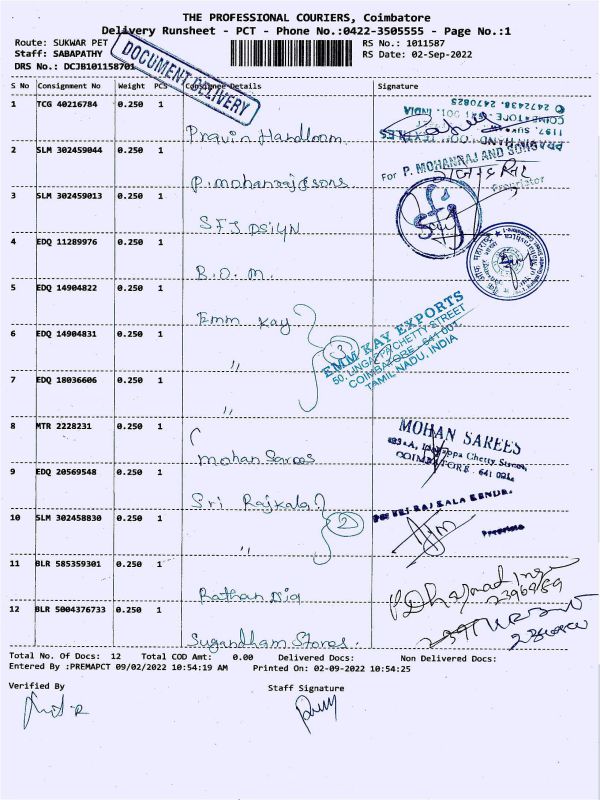 THE PROFESSIONAL COURIERS, Coimbatore
Delivery Runsheet - PCT - Phone No.:0422-3505555 - Page No.:1
Route: SUKWAR PET
RS No.: 1011587
Staff: SABAPATHY
RS Date: 02-Sep-2022
DRS No.: DCJB101158701
DOCUMENT DELIVERY
S No Consignment No Weight PCS Consignee Details Signature
1 TCG 40216784 0.250 1 Pravin Handloom
2472438, 2470825
2 SLM 302459044 0.250 1 P. mohanraj & sons
For P. MOHANRAJ AND SONS
Proprietor
3 SLM 302459013 0.250 1 S.F.J
4 EDQ 11289976 0.250 1 B.O.M.
5 EDQ 14904822 0.250 1 Emm Kay
6 EDQ 14904831 0.250 1 "
3
EMM KAY EXPORTS
50, LINGAPPA CHETTY STREET
COIMBATORE - 641 001
TAMIL NADU, INDIA
7 EDQ 18036606 0.250 1 "
8 MTR 2228231 0.250 1 Mohan Sarees
MOHAN SAREES
Chetty Street,
COIMBATORE - 641 001.
9 EDQ 20569548 0.250 1 Sri Rajkala
10 SLM 302458830 0.250 1 "
2
11 BLR 585359301 0.250 1 Rathan
12 BLR 5004376733 0.250 1 Sugandham Stores.
Total No. Of Docs: 12 Total COD Amt: 0.00 Delivered Docs: Non Delivered Docs:
Entered By :PREMAPCT 09/02/2022 10:54:19 AM Printed On: 02-09-2022 10:54:25
Verified By
Staff Signature